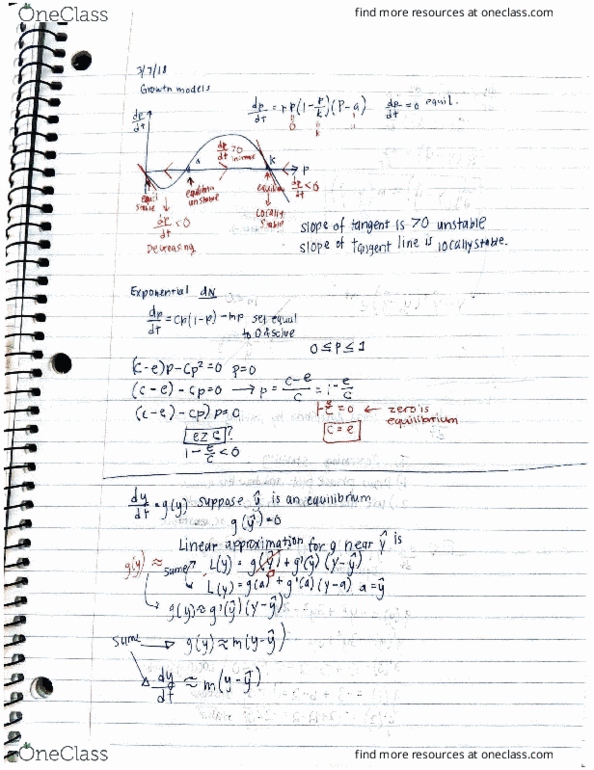 OneClass
find more resources at oneclass.com
3/7/18
Growth models
dp/dt = rp(1-p/k)(p-a) dp/dt = 0 equil.
0 k
dp/dt
a
dp/dt >0
increase
k
P
equil
stable
equilibria
unstable
equilibri
dp/dt <0
dp/dt <0
Decreasing
Locally
Stable
slope of tangent is >0 unstable
slope of tangent line is locally stable.
Exponential dN
dp/dt = cp(1-p) - mp set equal
to 0 & solve
0 ≤ p ≤ 1
(c-e)p - cp² = 0 p=0
(c-e) - cp = 0 → p = c-e/c = 1 - e/c
((c-e) - cp) p = 0
1 - e/c = 0 ← zero is
equilibrium
c = e
e ≥ c ?
1 - e/c < 0
dy/dt = g(y) suppose ŷ is an equilibrium
g(ŷ) = 0
Linear approximation for g near ŷ is
g(y) ≈ same? L(y) = g(ŷ) + g'(ŷ)(y-ŷ)
0
L(y) = g(a) + g'(a)(y-a) a = ŷ
g(y) ≈ g'(ŷ)(y-ŷ)
same → g(y) ≈ m(y-ŷ)
dy/dt ≈ m(y-ŷ)
OneClass
find more resources at oneclass.com